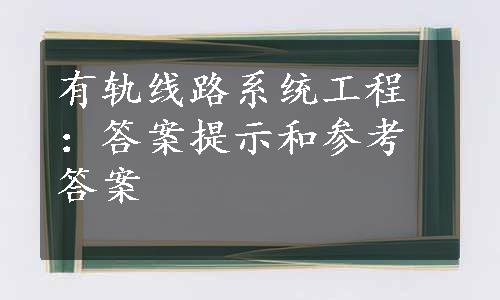 有轨线路系统工程
：答案提示和参考
答案